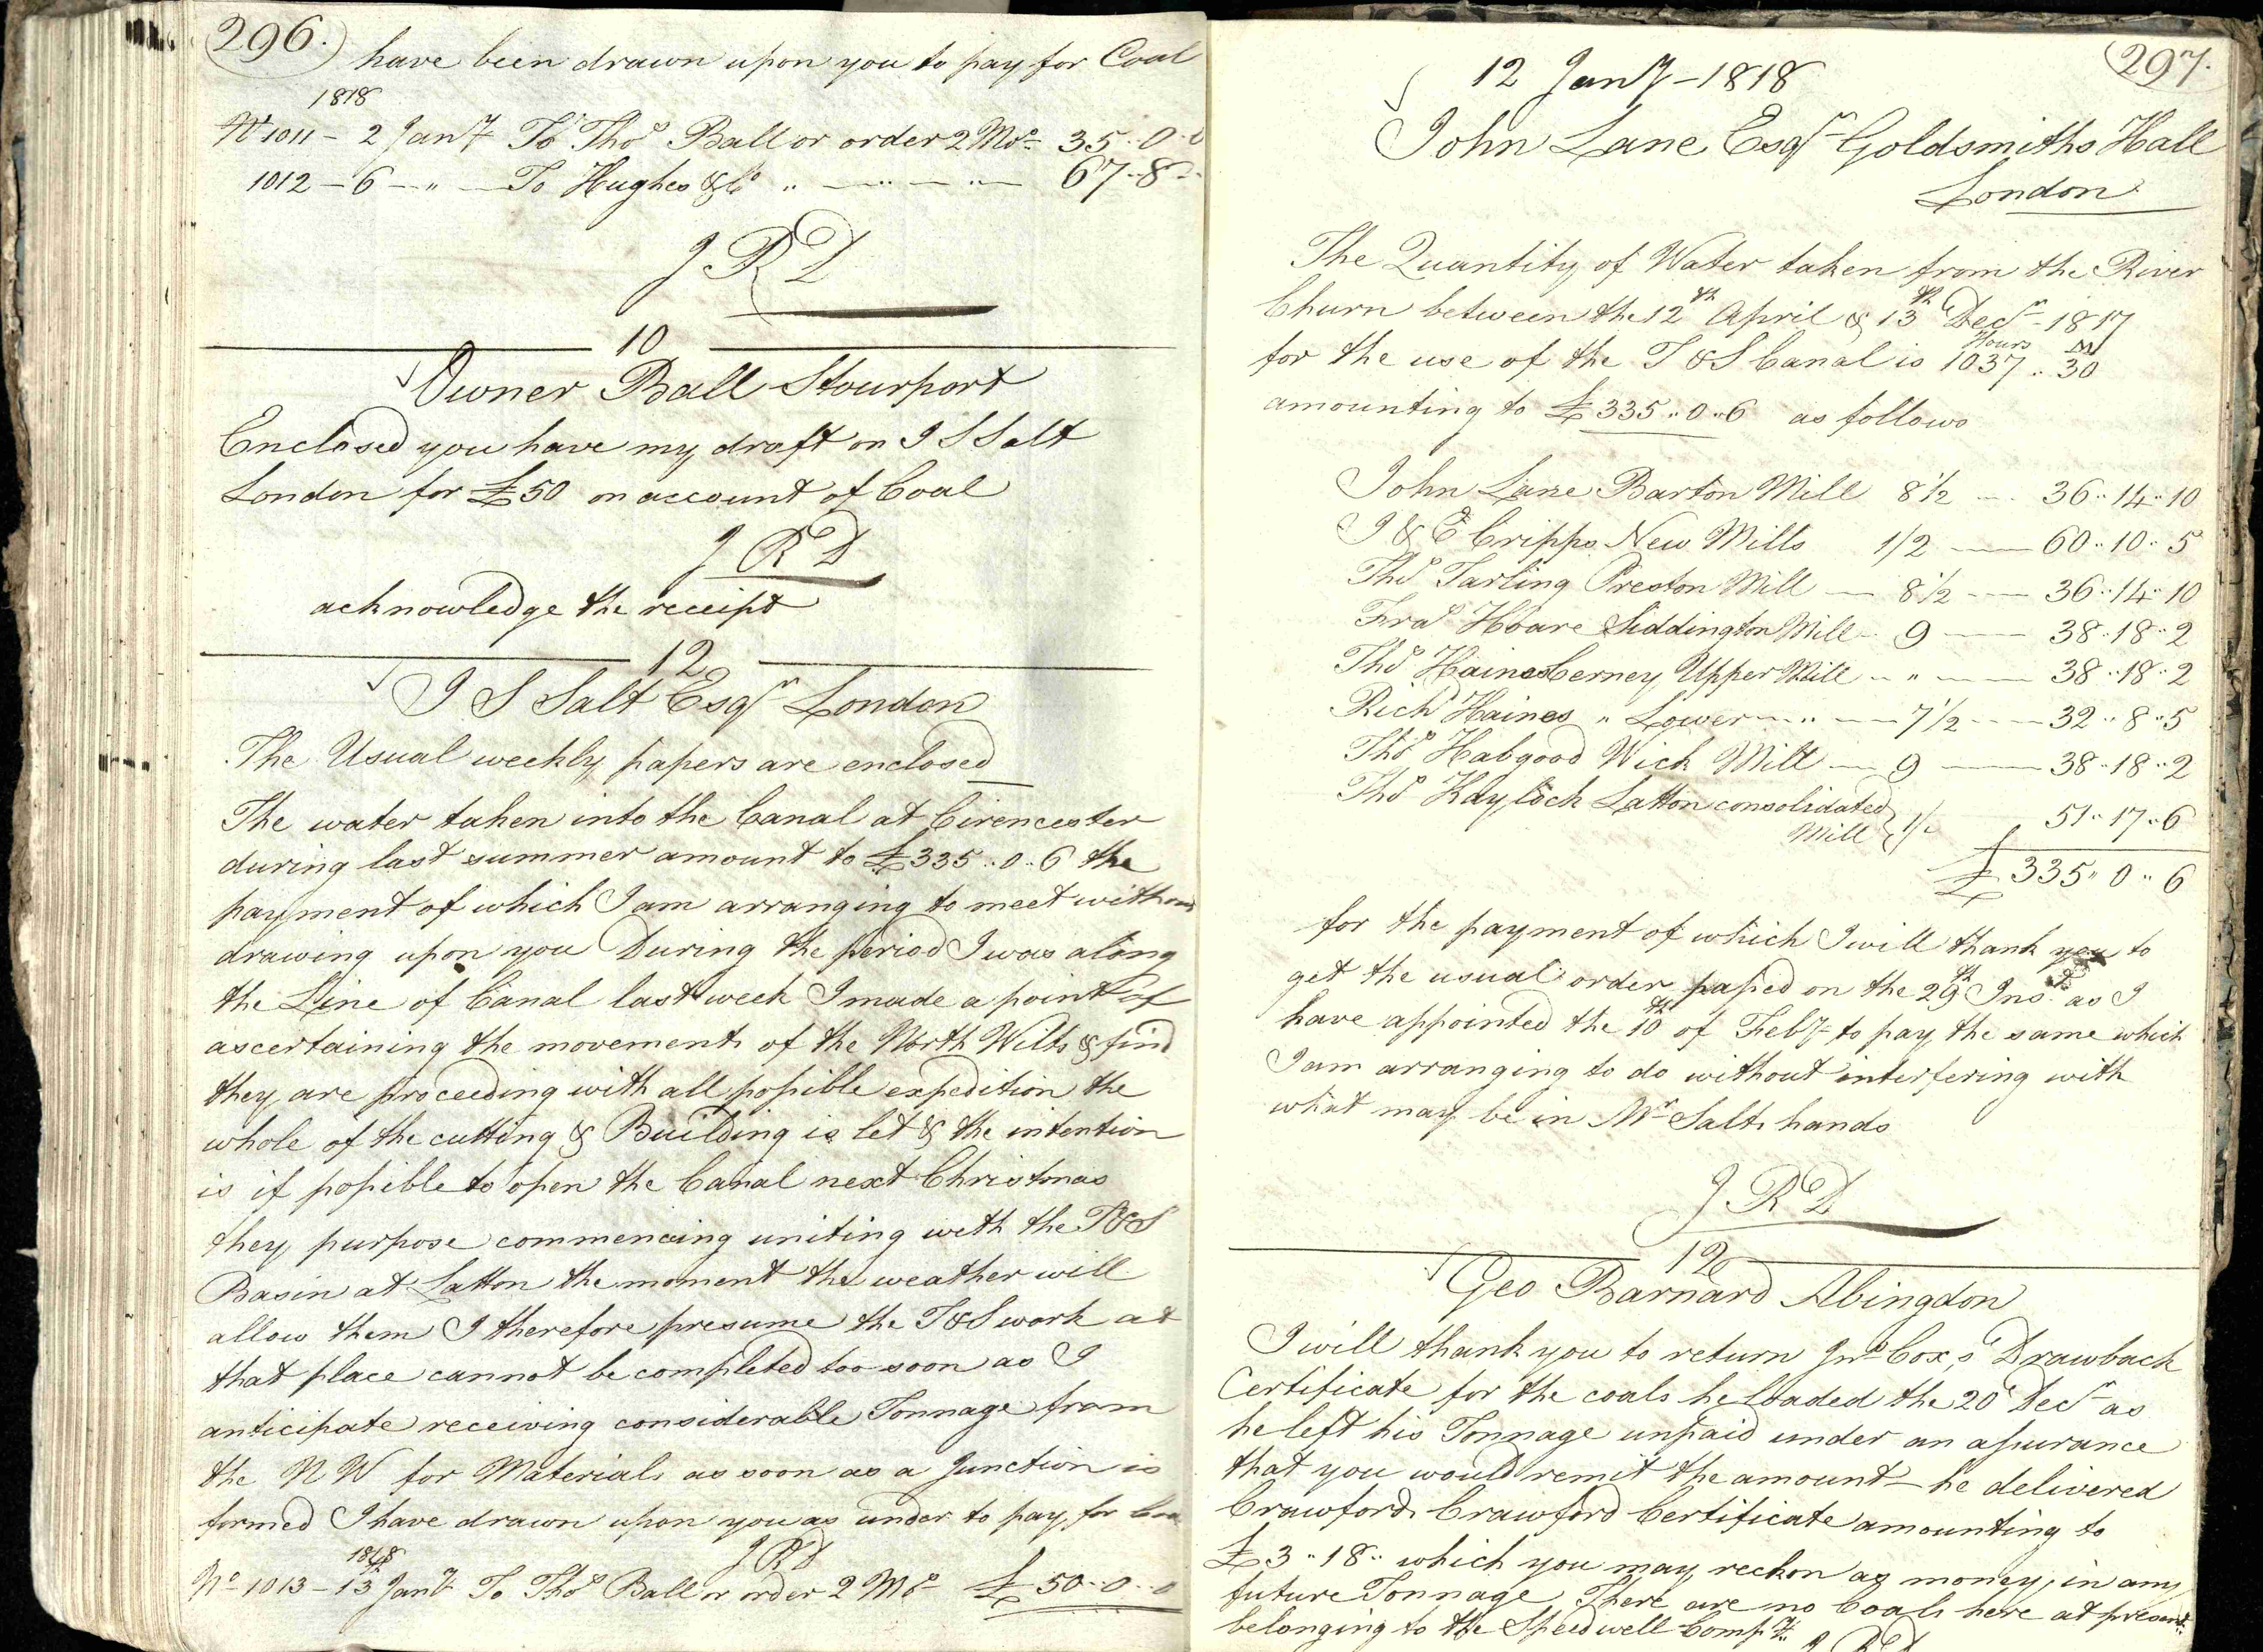 296.
have been drawn upon you to pay for Coal
1818
No 1011 - 2 Jany To Thos Ball or order 2 Mos 35..0..0
1012 - 6 - " - To Hughes & Co " - " - " - 67..8..
J R D
10
Owner Ball Stourport
Enclosed you have my draft on J S Salt
London for £50 on account of Coal
J R D
acknowledge the receipt
12
J S Salt Esqr London
The Usual weekly papers are enclosed
The water taken into the Canal at Cirencester
during last summer amount to £335..0..6 the
payment of which I am arranging to meet without
drawing upon you During the period I was along
the Line of Canal last week I made a point of
ascertaining the movements of the North Wilts & find
they are proceeding with all possible expedition the
whole of the cutting & Building is let & the intention
is if possible to open the Canal next Christmas
they purpose commencing uniting with the T&S
Basin at Latton the moment the weather will
allow them I therefore presume the T&S work at
that place cannot be completed too soon as I
anticipate receiving considerable Tonnage from
the N W for Materials as soon as a Junction is
formed I have drawn upon you as under to pay for Coal
J R D
1818
No 1013 - 13 Jany To Thos Ball or order 2 Mos £50..0..0
297.
12 Jany - 1818
John Lane Esqr Goldsmiths Hall
London
The Quantity of Water taken from the River
Churn between the 12th April & 13th Decr - 1817
for the use of the T&S Canal is 1037 Hours .. 30 M
amounting to £335..0..6 as follows
John Lane Barton Mill 8½ - 36..14..10
J & E Cripps New Mills 1/2 - 60..10..5
Thos Tarling Preston Mill - 8½ - 36..14..10
Fras Hoare Siddington Mill - 9 - 38..18..2
Thos Haines Cerney Upper Mill - " - 38..18..2
Richd Haines " Lower - " - 7½ - 32..8..5
Thos Habgood Wick Mill - 9 - 38..18..2
Thos Kaylock Latton consolidated
Mill } 1/- 51..17..6
£335..0..6
for the payment of which I will thank you to
get the usual order passed on the 29th Inst as I
have appointed the 10th of Feby to pay the same which
I am arranging to do without interfering with
what may be in Mr Salts hands
J R D
12
Geo Barnard Abingdon
I will thank you to return Jno Cox,s Drawback
Certificate for the coals he loaded the 20 Decr as
he left his Tonnage unpaid under an assurance
that you would remit the amount - he delivered
Crawfords Crawford Certificate amounting to
£3..18.. which you may reckon as money, in any
future Tonnage There are no Coals here at present
belonging to the Speedwell Compy.
J R D